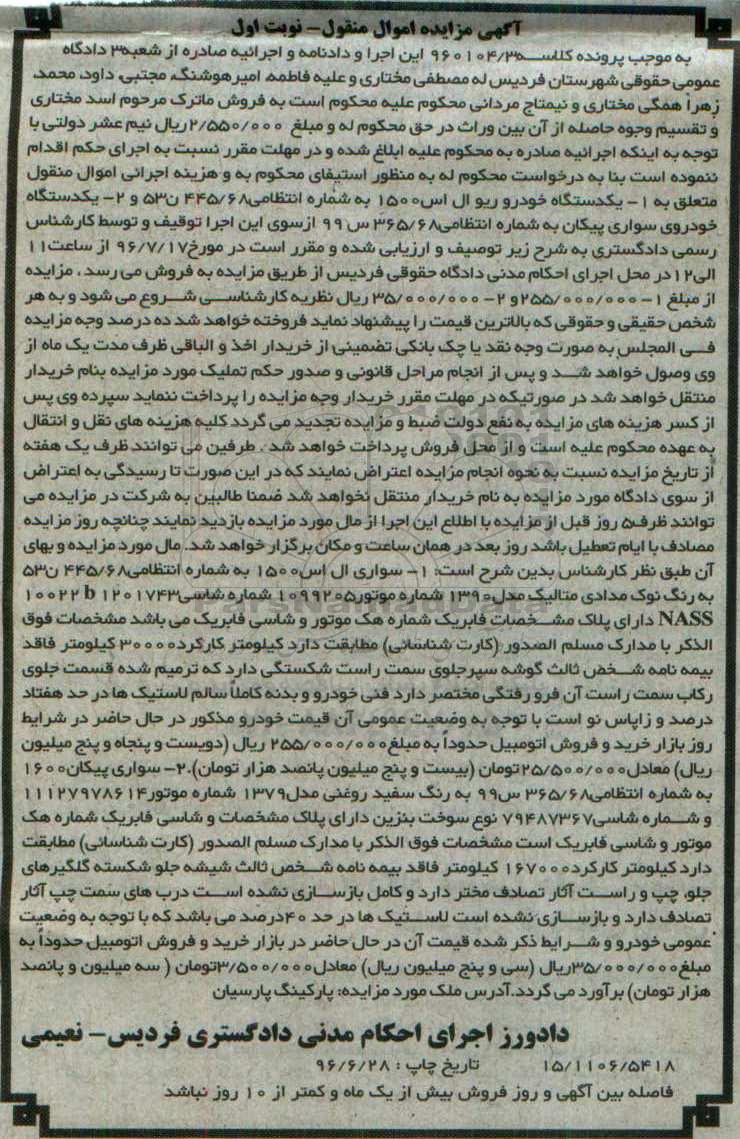 آگهی مزایده اموال منقول- نوبت اول
به موجب پرونده کلاسه ۹۶۰۱۰۴/۳ این اجرا و دادنامه و اجرائیه صادره از شعبه۳ دادگاه
عمومی حقوقی شهرستان فردیس له مصطفی مختاری و علیه فاطمه، امیرهوشنگ، مجتبی، داود، محمد،
زهرا همگی مختاری و نیمتاج مردانی محکوم علیه محکوم است به فروش ماترک مرحوم اسد مختاری
و تقسیم وجوه حاصله از آن بین وراث در حق محکوم له و مبلغ ۲/۵۵۰/۰۰۰ ریال نیم عشر دولتی با
توجه به اینکه اجرائیه صادره به محکوم علیه ابلاغ شده و در مهلت مقرر نسبت به اجرای حکم اقدام
ننموده است بنا به درخواست محکوم له به منظور استیفای محکوم به و هزینه اجرائی اموال منقول
متعلق به ۱- یکدستگاه خودرو ریو ال اس۱۵۰۰ به شماره انتظامی۴۴۵/۶۸ ن۵۳ و ۲- یکدستگاه
خودروی سواری پیکان به شماره انتظامی۳۶۵/۶۸ س ۹۹ ازسوی این اجرا توقیف و توسط کارشناس
رسمی دادگستری به شرح زیر توصیف و ارزیابی شده و مقرر است در مورخ۹۶/۷/۱۷ از ساعت۱۱
الی۱۲در محل اجرای احکام مدنی دادگاه حقوقی فردیس از طریق مزایده به فروش می رسد ، مزایده
از مبلغ ۱- ۲۵۵/۰۰۰/۰۰۰و ۲- ۳۵/۰۰۰/۰۰۰ ریال نظریه کارشناسی شروع می شود و به هر
شخص حقیقی و حقوقی که بالاترین قیمت را پیشنهاد نماید فروخته خواهد شد ده درصد وجه مزایده
فی المجلس به صورت وجه نقد یا چک بانکی تضمینی از خریدار اخذ و الباقی ظرف مدت یک ماه از
وی وصول خواهد شد و پس از انجام مراحل قانونی و صدور حکم تملیک مورد مزایده بنام خریدار
منتقل خواهد شد در صورتیکه در مهلت مقرر خریدار وجه مزایده را پرداخت ننماید سپرده وی پس
از کسر هزینه های مزایده به نفع دولت ضبط و مزایده تجدید می گردد کلیه هزینه های نقل و انتقال
به عهده محکوم علیه است و از محل فروش پرداخت خواهد شد . طرفین می توانند ظرف یک هفته
از تاریخ مزایده نسبت به نحوه انجام مزایده اعتراض نمایند که در این صورت تا رسیدگی به اعتراض
از سوی دادگاه مورد مزایده به نام خریدار منتقل نخواهد شد ضمنا طالبین به شرکت در مزایده می
توانند ظرف۵ روز قبل از مزایده با اطلاع این اجرا از مال مورد مزایده بازدید نمایند چنانچه روز مزایده
مصادف با ایام تعطیل باشد روز بعد در همان ساعت و مکان برگزار خواهد شد. مال مورد مزایده و بهای
آن طبق نظر کارشناس بدین شرح است: ۱- سواری ال اس۱۵۰۰ به شماره انتظامی۴۴۵/۶۸ ن۵۳
به رنگ نوک مدادی متالیک مدل۱۳۹۰ شماره موتور۱۰۹۹۲۰۵ شماره شاسی۱۲۰۱۷۴۳ b ۱۰۰۲۲
NASS دارای پلاک مشخصات فابریک شماره هک موتور و شاسی فابریک می باشد مشخصات فوق
الذکر با مدارک مسلم الصدور (کارت شناسائی) مطابقت دارد کیلومتر کارکرد۳۰۰۰۰ کیلومتر فاقد
بیمه نامه شخص ثالث گوشه سپرجلوی سمت راست شکستگی دارد که ترمیم شده قسمت جلوی
رکاب سمت راست آن فرو رفتگی مختصر دارد فنی خودرو و بدنه کاملاً سالم لاستیک ها در حد هفتاد
درصد و زاپاس نو است با توجه به وضعیت عمومی آن قیمت خودرو مذکور در حال حاضر در شرایط
روز بازار خرید و فروش اتومبیل حدوداً به مبلغ۲۵۵/۰۰۰/۰۰۰ ریال (دویست و پنجاه و پنج میلیون
ریال) معادل۲۵/۵۰۰/۰۰۰تومان (بیست و پنج میلیون پانصد هزار تومان).۲- سواری پیکان۱۶۰۰
به شماره انتظامی۳۶۵/۶۸ س۹۹ به رنگ سفید روغنی مدل۱۳۷۹ شماره موتور۱۱۱۲۷۹۷۸۶۱۴
و شماره شاسی۷۹۴۸۷۳۶۷ نوع سوخت بنزین دارای پلاک مشخصات و شاسی فابریک شماره هک
موتور و شاسی فابریک است مشخصات فوق الذکر با مدارک مسلم الصدور (کارت شناسائی) مطابقت
دارد کیلومتر کارکرد۱۶۷۰۰۰ کیلومتر فاقد بیمه نامه شخص ثالث شیشه جلو شکسته گلگیرهای
جلو، چپ و راست آثار تصادف مختر دارد و کامل بازسازی نشده است درب های سمت چپ آثار
تصادف دارد و بازسازی نشده است لاستیک ها در حد ۴۰درصد می باشد که با توجه به وضعیت
عمومی خودرو و شرایط ذکر شده قیمت آن در حال حاضر در بازار خرید و فروش اتومبیل حدوداً به
مبلغ۳۵/۰۰۰/۰۰۰ریال (سی و پنج میلیون ریال) معادل۳/۵۰۰/۰۰۰تومان ( سه میلیون و پانصد
هزار تومان) برآورد می گردد.آدرس ملک مورد مزایده: پارکینگ پارسیان
دادورز اجرای احکام مدنی دادگستری فردیس- نعیمی
۱۵/۱۱۰۶/۵۴۱۸ تاریخ چاپ : ۹۶/۶/۲۸
فاصله بین آگهی و روز فروش بیش از یک ماه و کمتر از ۱۰ روز نباشد